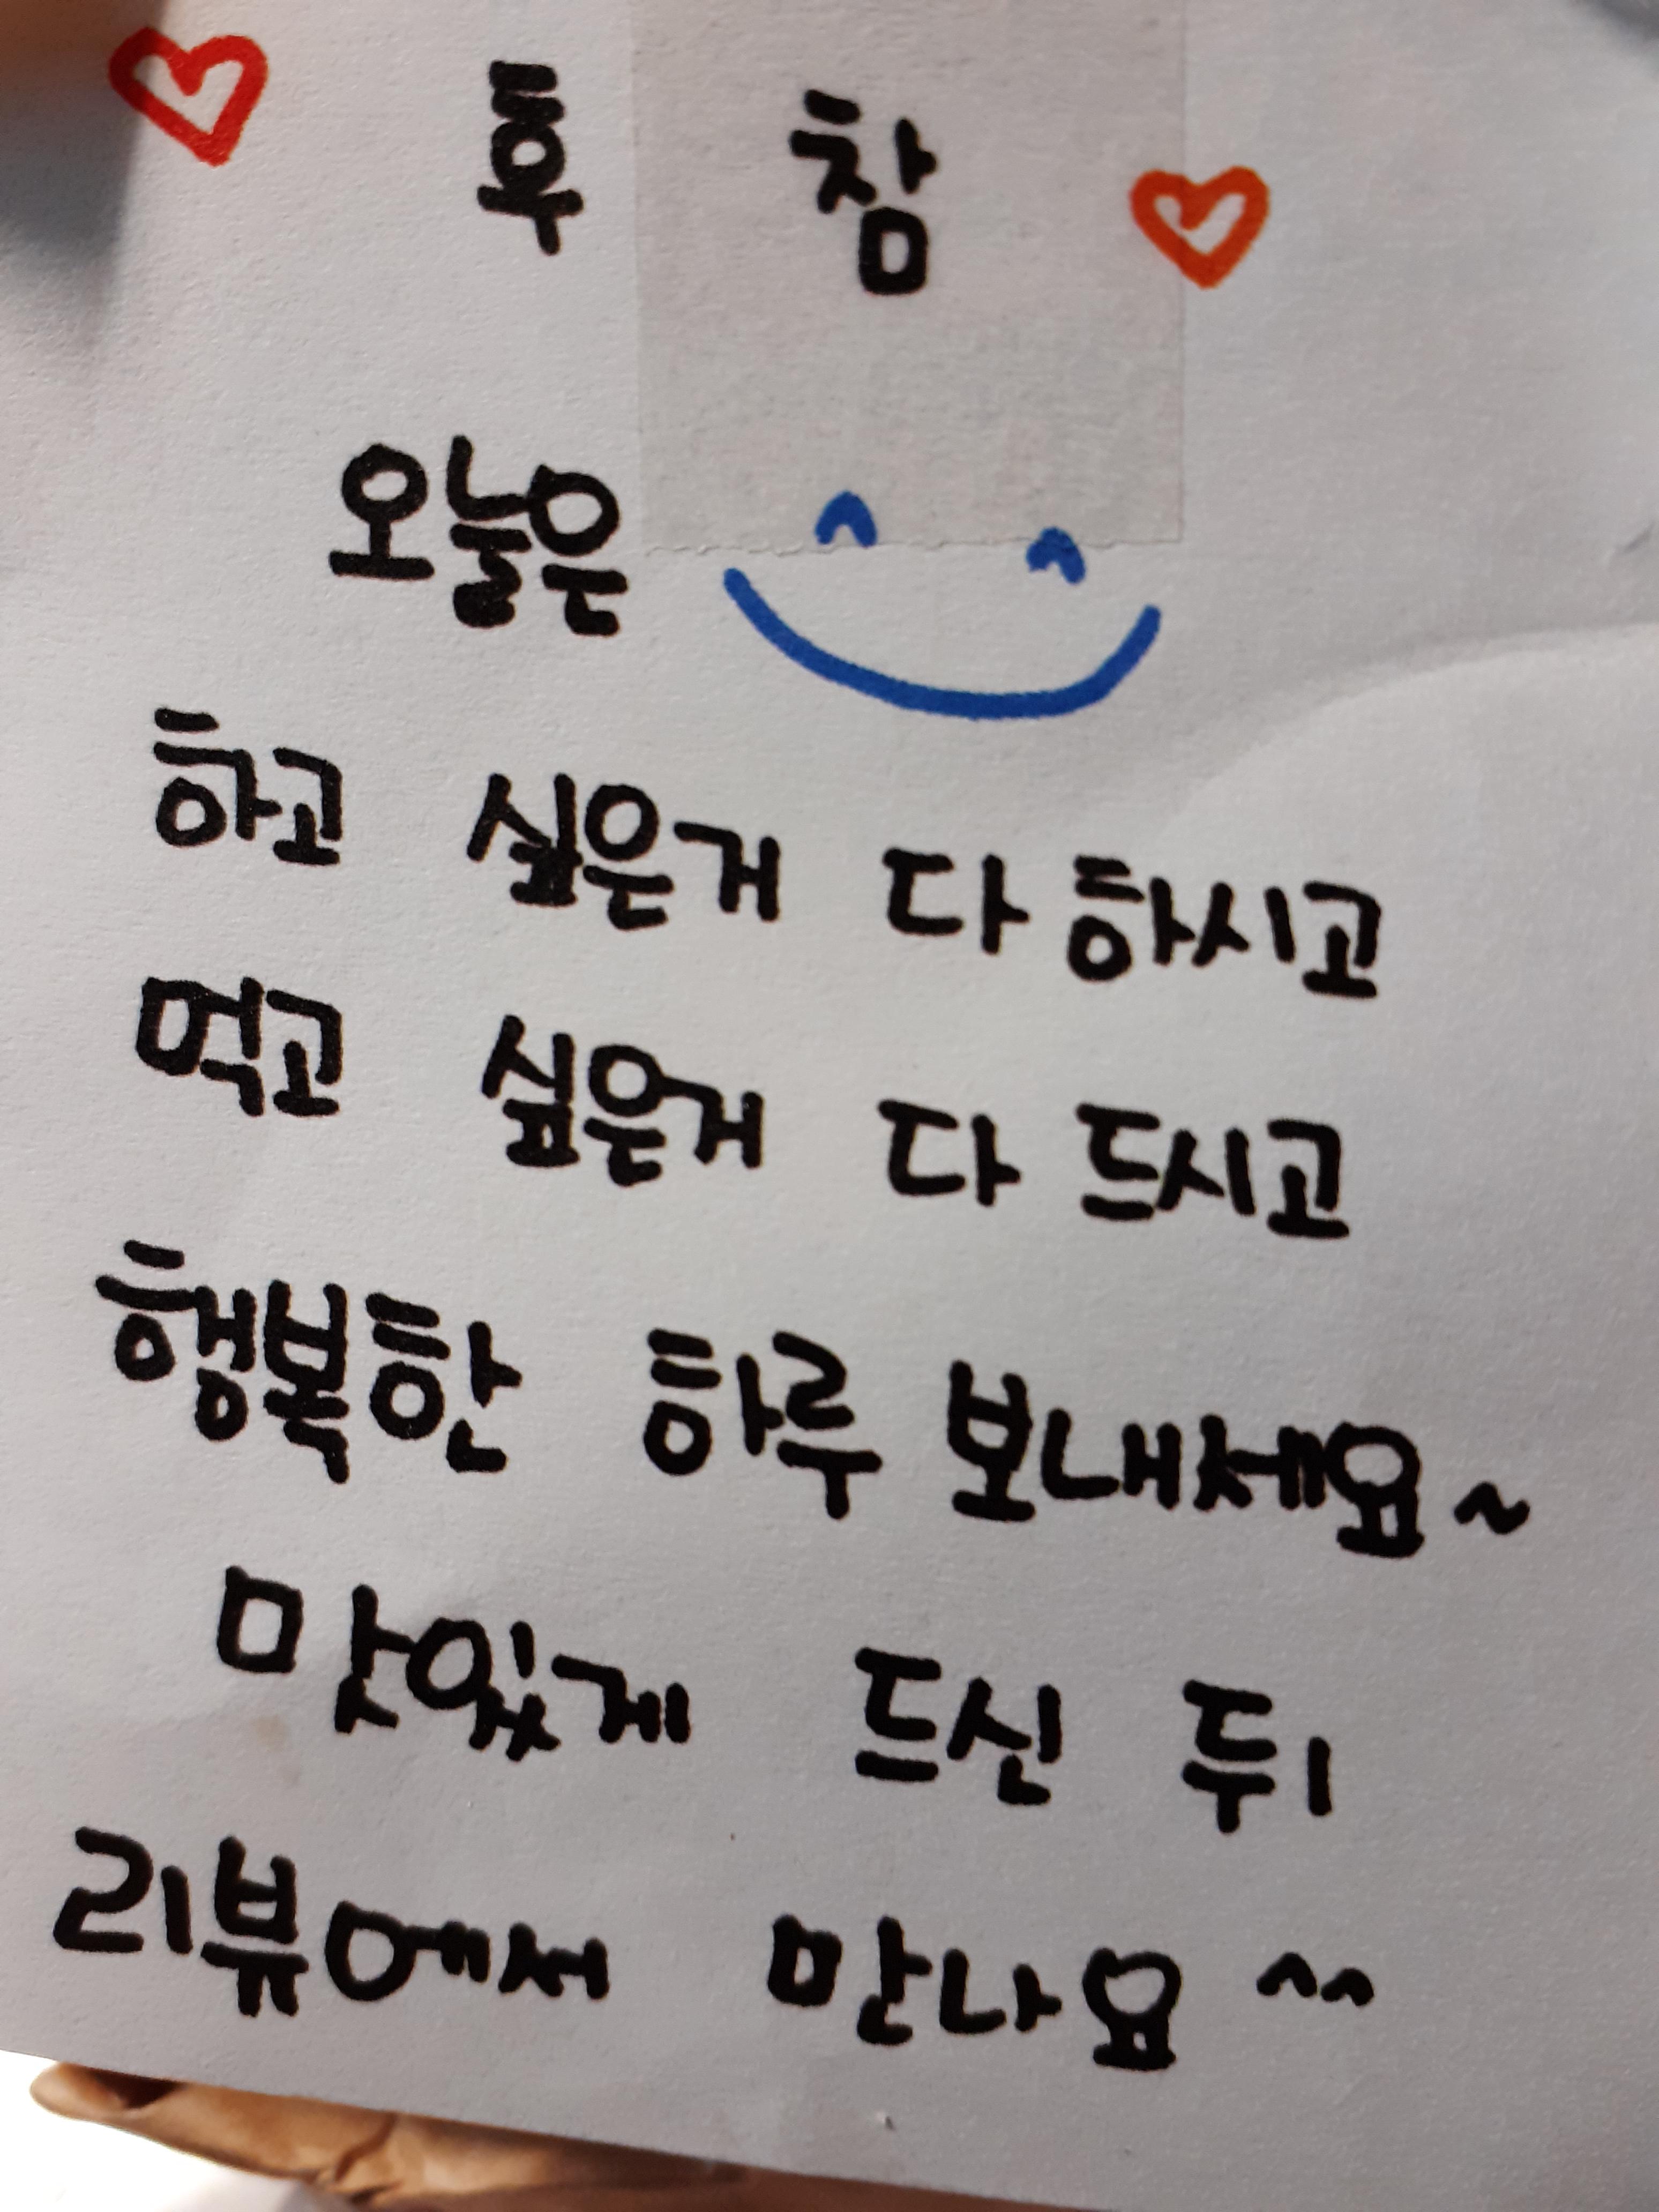 후 참
오늘은
하고 싶은거 다 하시고
먹고 싶은거 다 드시고
행복한 하루 보내세요~
맛있게 드신 뒤
리뷰에서 만나요 ^^